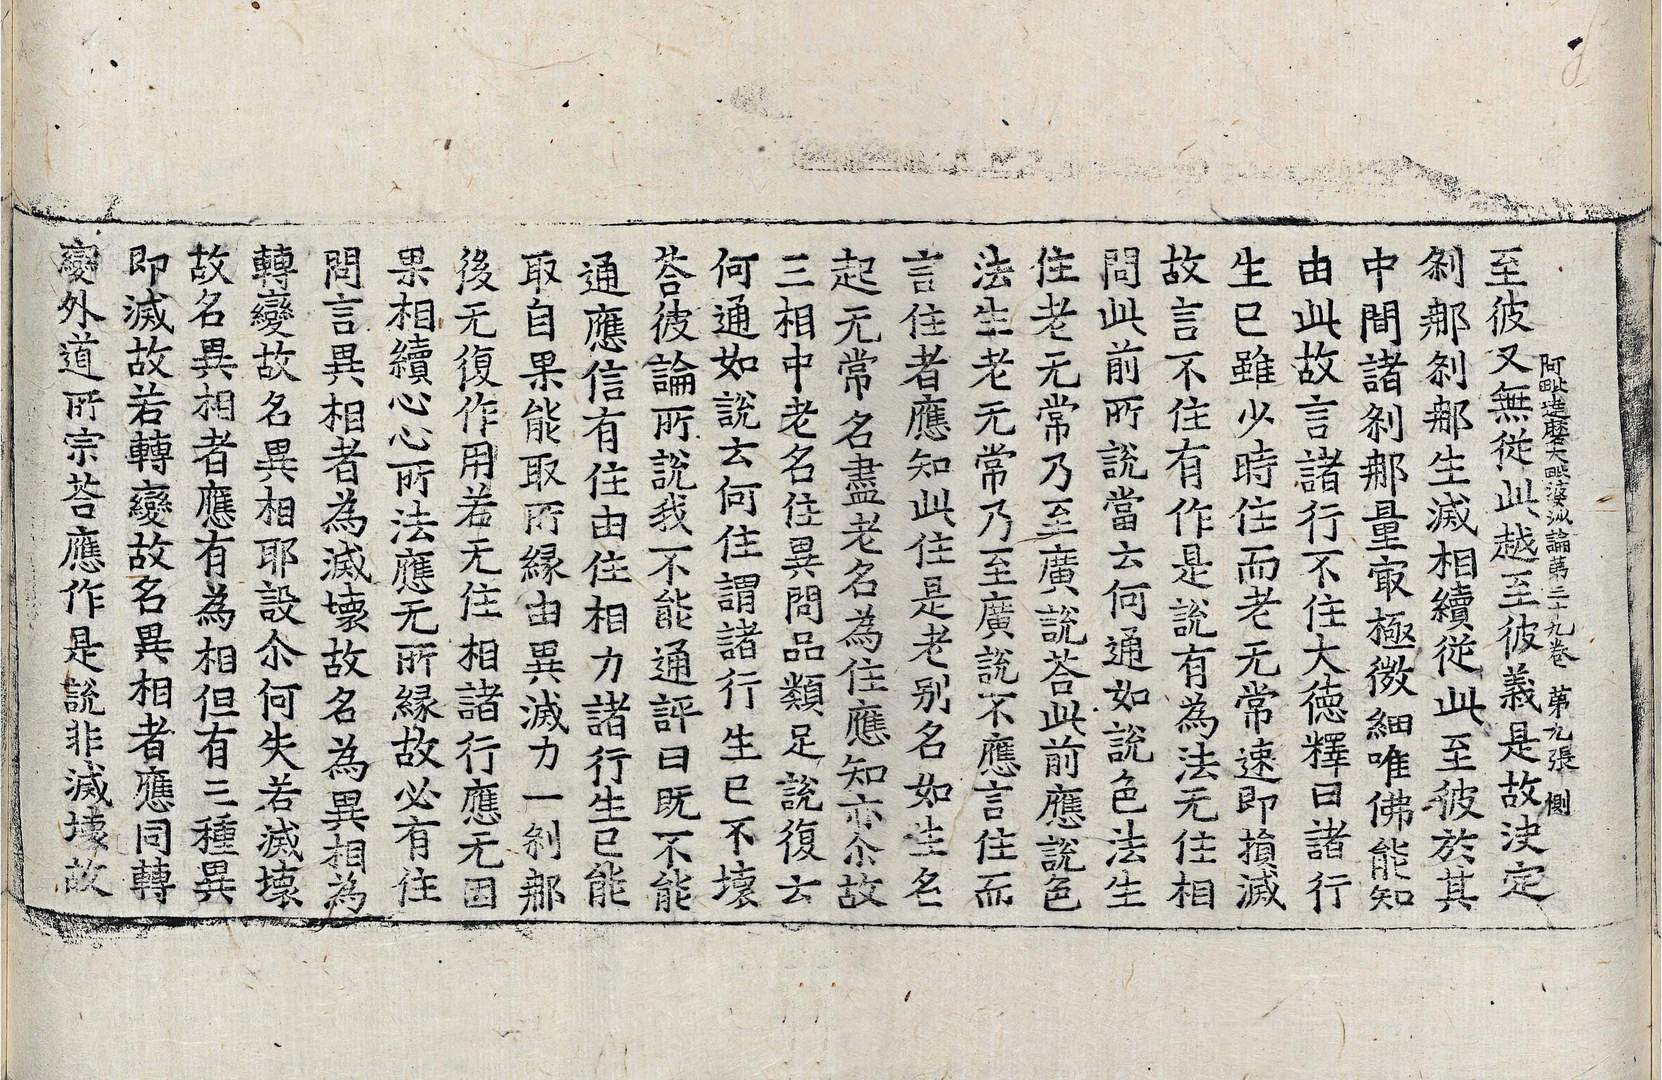 阿毗達磨大毗婆沙論第三十九卷 第九張 惻
至彼又無從此越至彼義是故決定
刹那刹那生滅相續從此至彼於其
中間諸刹那量㝡極微細唯佛能知
由此故言諸行不住大德釋曰諸行
生已雖少時住而老无常速即損滅
故言不住有作是說有為法无住相
問此前所說當云何通如說色法生
住老无常乃至廣說荅此前應說色
法生老无常乃至廣說不應言住而
言住者應知此住是老别名如生名
起无常名盡老名為住應知亦尒故
三相中老名住異問品類足說復云
何通如說云何住謂諸行生已不壞
荅彼論所說我不能通評曰既不能
通應信有住由住相力諸行生已能
取自果能取所緣由異滅力一刹那
後无復作用若无住相諸行應无因
果相續心心所法應无所緣故必有住
問言異相者為滅壞故名為異相為
轉變故名異相耶設尒何失若滅壞
故名異相者應有為相但有三種異
即滅故若轉變故名異相者應同轉
變外道所宗荅應作是說非滅壞故